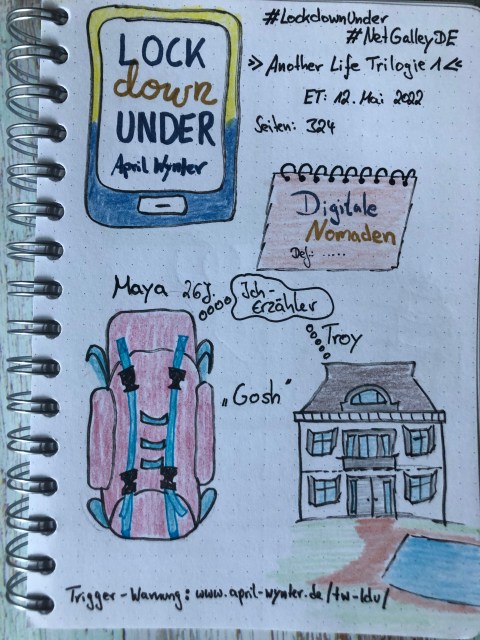 LOCK
down
UNDER
April Wynter
#LockdownUnder
#NetGalleyDE
>> Another Life Trilogie 1 <<
ET: 12. Mai 2022
Seiten: 324
Digitale
Nomaden
Def.: .....
Maya 26J.
Ich-
Erzähler
Troy
„Gosh"
Trigger-Warnung: www.april-wynter.de/tw-ldu/